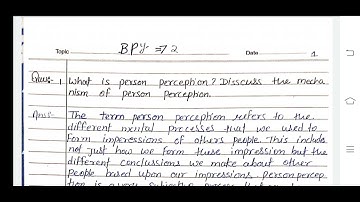 Topic BPY => 2 Date 1
Ques:- 1. What is person perception? Disscuss the mecha-
nism of person perception.
Ans:- The term person perception refers to the
different mental processes that we used to
form impressions of others people. This include
not just how we form these impression but the
different conclussions we make about other
people based upon our impressions. Person percep-